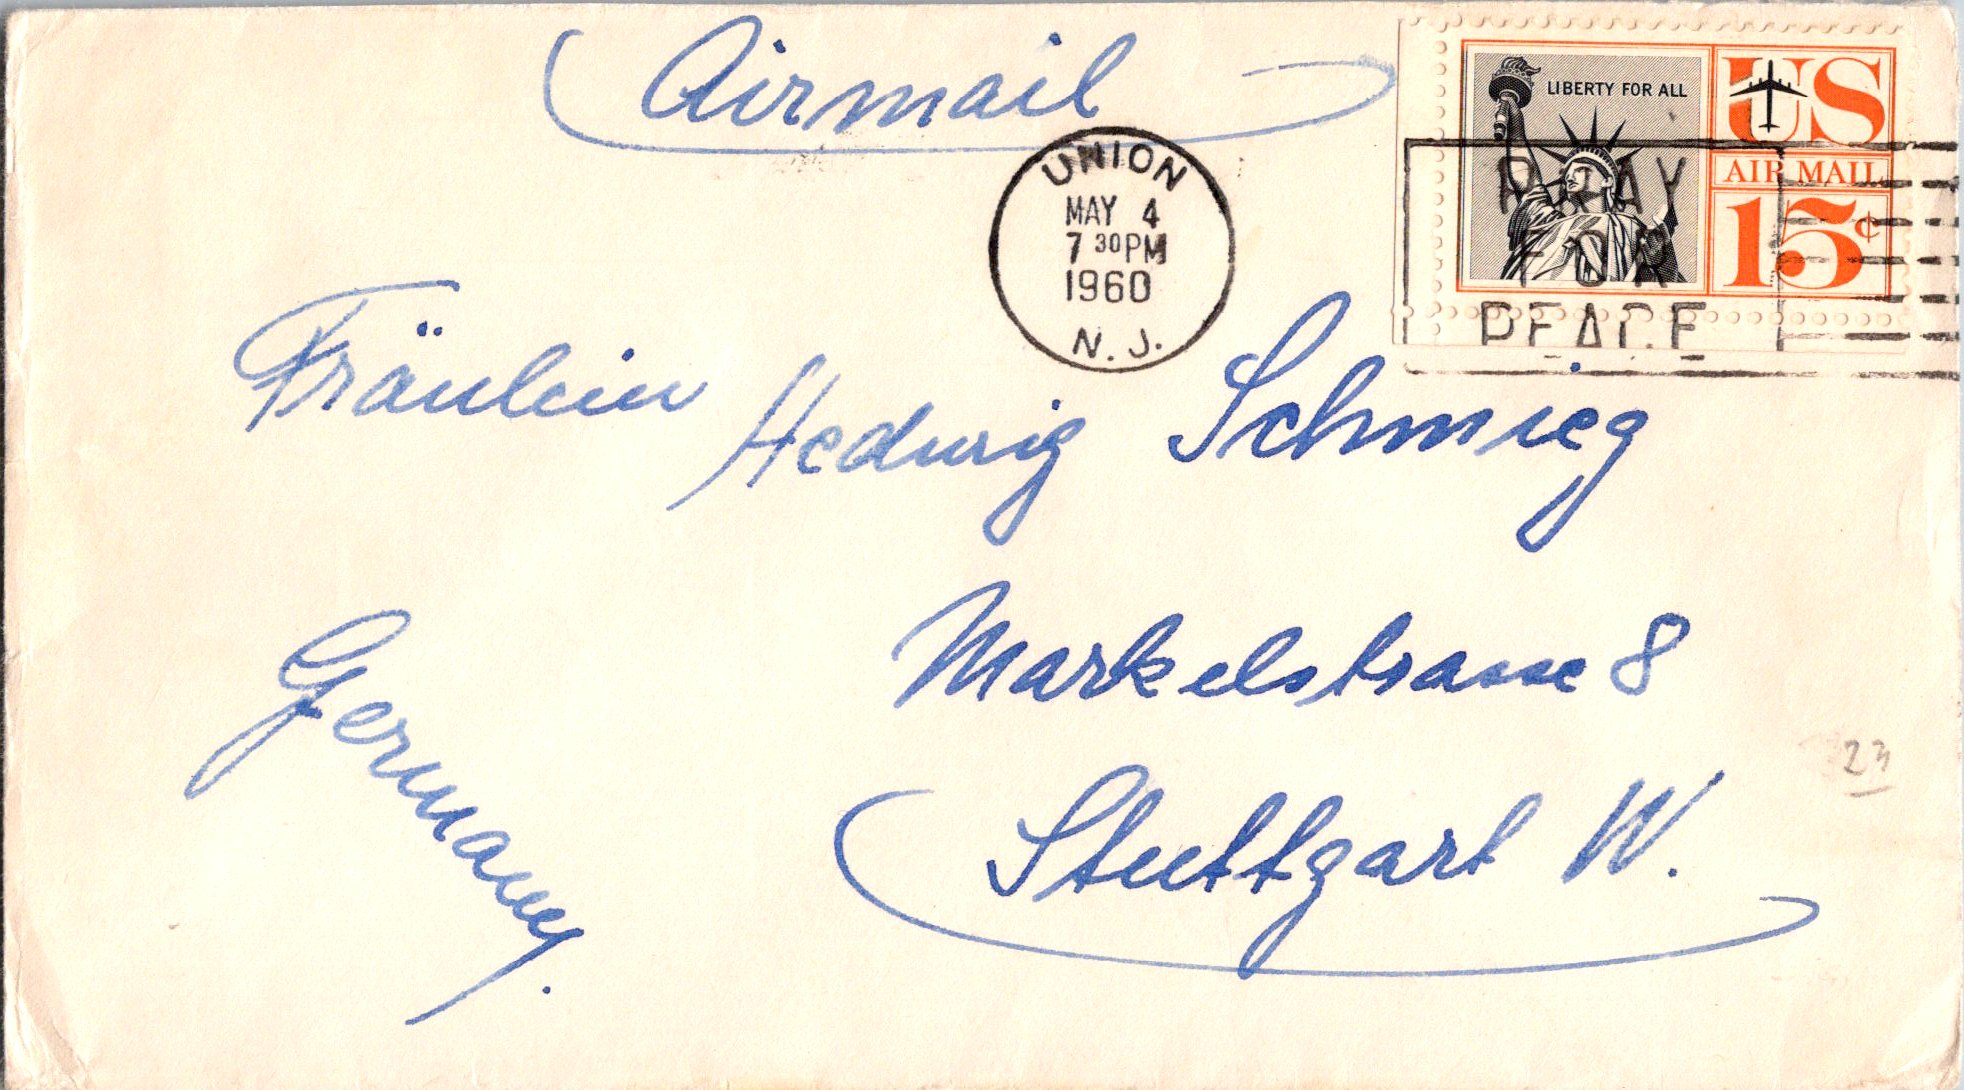 Airmail
UNION
MAY 4
7 30PM
1960
N. J.
LIBERTY FOR ALL
US
AIR MAIL
15¢
PRAY
FOR
PEACE
Fräulein Hedwig Schmieg
Markelstrasse 8
Stuttgart W.
Germany.
23